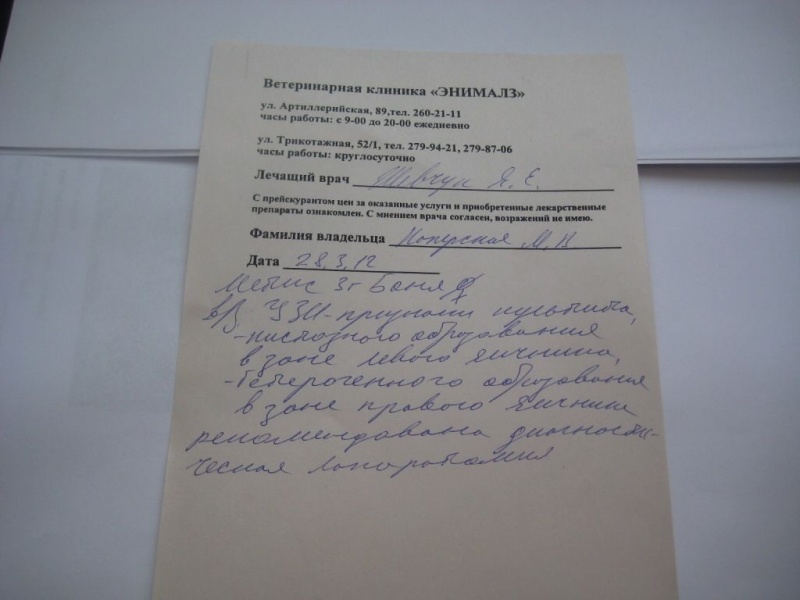 Ветеринарная клиника «ЭНИМАЛЗ»
ул. Артиллерийская, 89,тел. 260-21-11
часы работы: с 9-00 до 20-00 ежедневно
ул. Трикотажная, 52/1, тел. 279-94-21, 279-87-06
часы работы: круглосуточно
Лечащий врач Шевчук Я. Е.
С прейскурантом цен за оказанные услуги и приобретенные лекарственные
препараты ознакомлен. С мнением врача согласен, возражений не имею.
Фамилия владельца М. В.
Дата 28.3.12
Метис 3г Боня
УЗИ-признаки
-кистозного образования
в зоне левого яичника,
-Гетерогенного образования
в зоне правого яичника
рекомендована диагности-
ческая лапаротомия